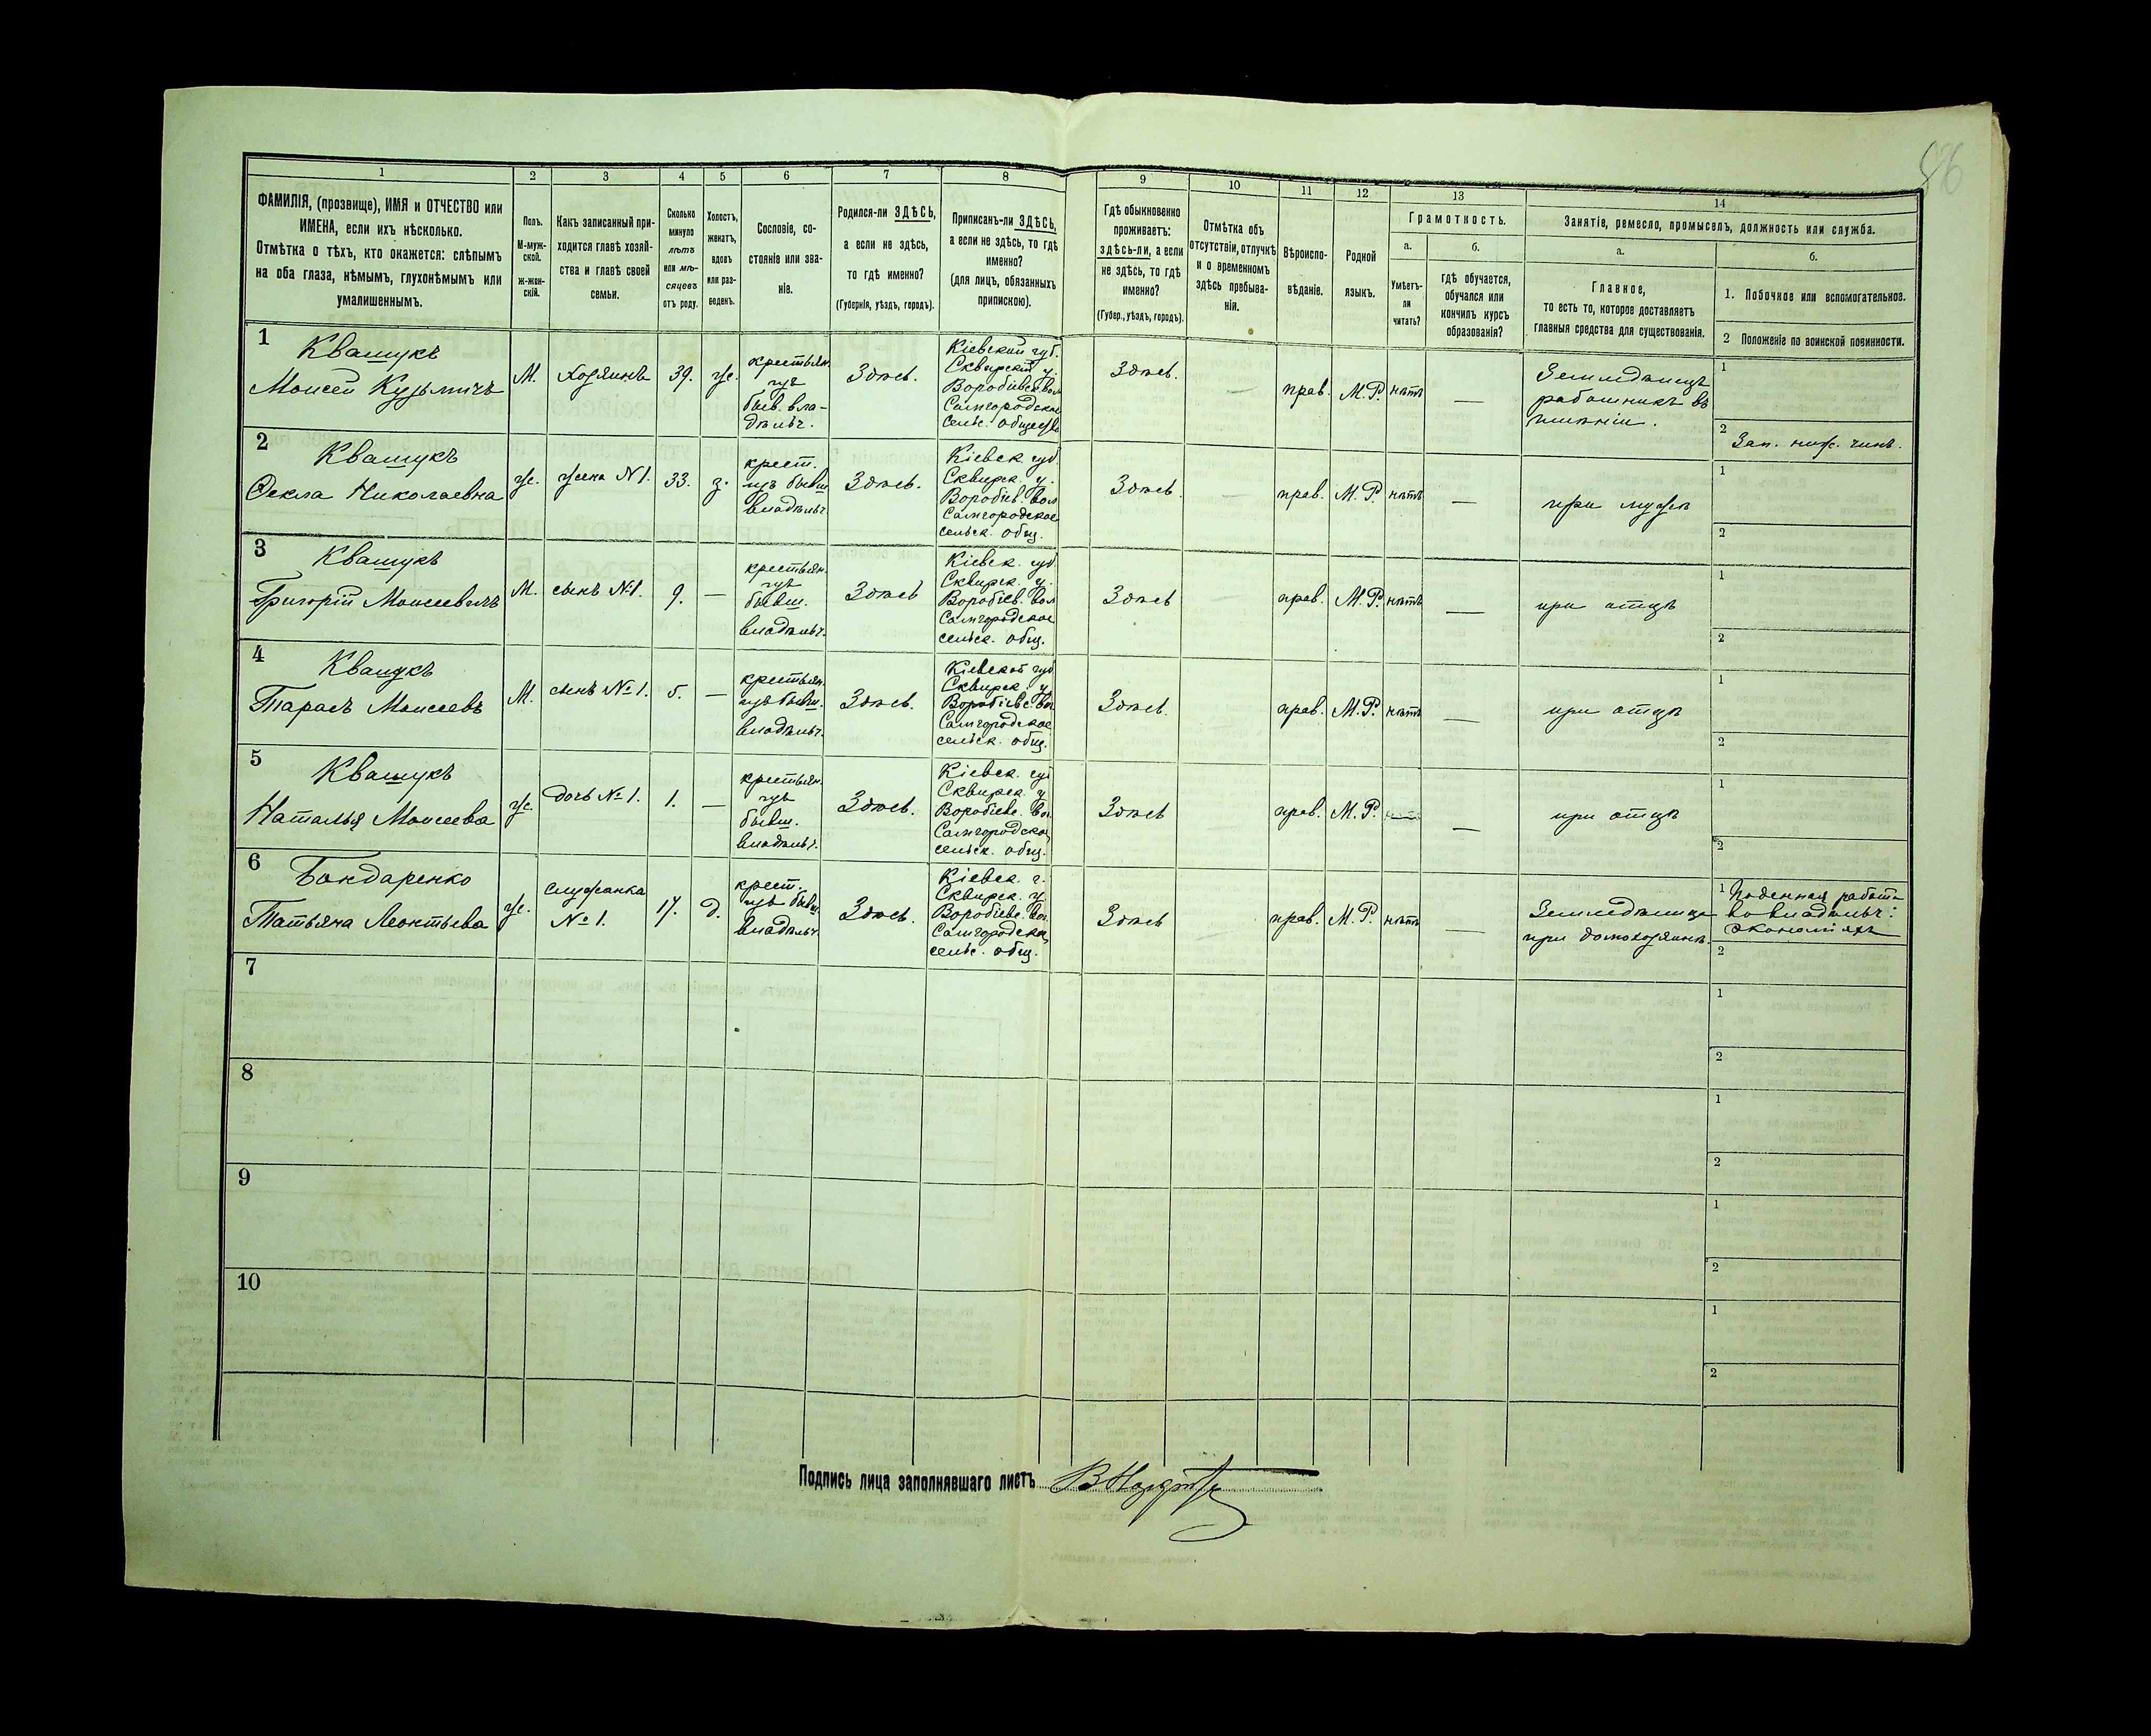 96
1 2 3 4 5 6 7 8 9 10 11 12 13 14
ФАМИЛІЯ, (прозвище), ИМЯ и ОТЧЕСТВО или
ИМЕНА, если ихъ нѣсколько.
Отмѣтка о тѣхъ, кто окажется: слѣпымъ
на оба глаза, нѣмымъ, глухонѣмымъ или
умалишеннымъ.
Полъ.
М-муж-
ской.
ж-жен-
скій.
Какъ записанный при-
ходится главѣ хозяй-
ства и главѣ своей
семьи.
Сколько
минуло
лѣтъ
или мѣ-
сяцевъ
отъ роду.
Холостъ,
женатъ,
вдовъ
или раз-
веденъ.
Сословіе, со-
стояніе или зва-
ніе.
Родился-ли ЗДѢСЬ,
а если не здѣсь,
то гдѣ именно?
(Губернія, уѣздъ, городъ).
Приписанъ-ли ЗДѢСЬ,
а если не здѣсь, то гдѣ
именно?
(для лицъ, обязанныхъ
припискою).
Гдѣ обыкновенно
проживаетъ:
здѣсь-ли, а если
не здѣсь, то гдѣ
именно?
(Губер., уѣздъ, городъ).
Отмѣтка объ
отсутствіи, отлучкѣ
и о временномъ
здѣсь пребыва-
ніи.
Вѣроиспо-
вѣданіе.
Родной
языкъ.
Грамотность.
а.
Умѣетъ-
ли
читать?
б.
гдѣ обучается,
обучался или
кончилъ курсъ
образованія?
Занятіе, ремесло, промыселъ, должность или служба.
а.
Главное,
то есть то, которое доставляетъ
главныя средства для существованія.
б.
1. Побочное или вспомогательное.
2 Положеніе по воинской повинности.
1
Квашукъ
Моисей Кузьмичъ
М.
Хозяинъ
39.
ж.
крестьян.
изъ
быв. вла-
дѣльч.
Здѣсь.
Кіевской губ.
Сквирской у.
Воробіевс. вол
Самгородское
сельс. общество
Здѣсь.
—
прав.
М.Р.
нѣтъ
—
Земледѣлецъ
работникъ въ
имѣніи.
1
2
Зап. ниж. чинъ.
2
Квашукъ
Фекла Николаевна
ж.
жена №1.
33.
з.
крест.
изъ бывш
владѣльч.
Здѣсь.
Кіевск. губ.
Сквирск. у.
Воробіев. вол
Самгородское
сельск. общ.
Здѣсь.
—
прав.
М.Р.
нѣтъ
—
при мужѣ
1
2
3
Квашукъ
Григорій Моисеевичъ
М.
сынъ №1.
9.
—
крестьян.
изъ
бывш.
владѣльч.
Здѣсь
Кіевск. губ
Сквирск. у.
Воробіев. вол
Самгородское
сельск. общ.
Здѣсь
—
прав.
М.Р.
нѣтъ
—
при отцѣ
1
2
4
Квашукъ
Тарасъ Моисеевъ
М.
сынъ №1.
5.
—
крестьян.
изъ бывш.
владѣльч.
Здѣсь.
Кіевской губ
Сквирск. у.
Воробіевс. вол
Самгородское
сельск. общ.
Здѣсь.
—
прав.
М.Р.
нѣтъ
—
при отцѣ
1
2
5
Квашукъ
Наталья Моисеева
ж.
дочь №1.
1.
—
крестьян.
изъ
бывш.
владѣльч.
Здѣсь.
Кіевск. губ
Сквирск. у
Воробіевс. вол.
Самгородское
сельск. общ.
Здѣсь
—
прав.
М.Р.
—
—
при отцѣ
1
2
6
Бондаренко
Татьяна Леонтьева
ж.
служанка
№1.
17.
д.
крест.
изъ бывш.
владѣльч.
Здѣсь.
Кіевск. г.
Сквирск. у.
Воробіевс. вол.
Самгородское
сельс. общ.
Здѣсь
—
прав.
М.Р.
нѣтъ
—
Земледѣлица
при домохозяинѣ.
1 Поденная работа
во владѣльч:
экономіяхъ
2
7
1
2
8
1
2
9
1
2
10
1
2
Подпись лица заполнявшаго листъ